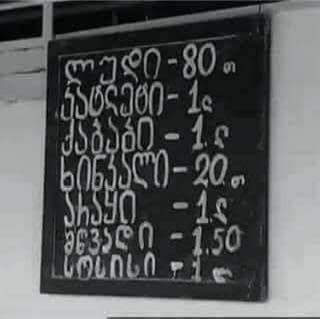 ლუდი - 80 კ
კატლეტი - 1 ლ
ქაბაბი - 1. ლ
ხინკალი - 20 კ
არაყი - 1. ლ
მწვადი - 1.50
სოსისი - 1 ლ